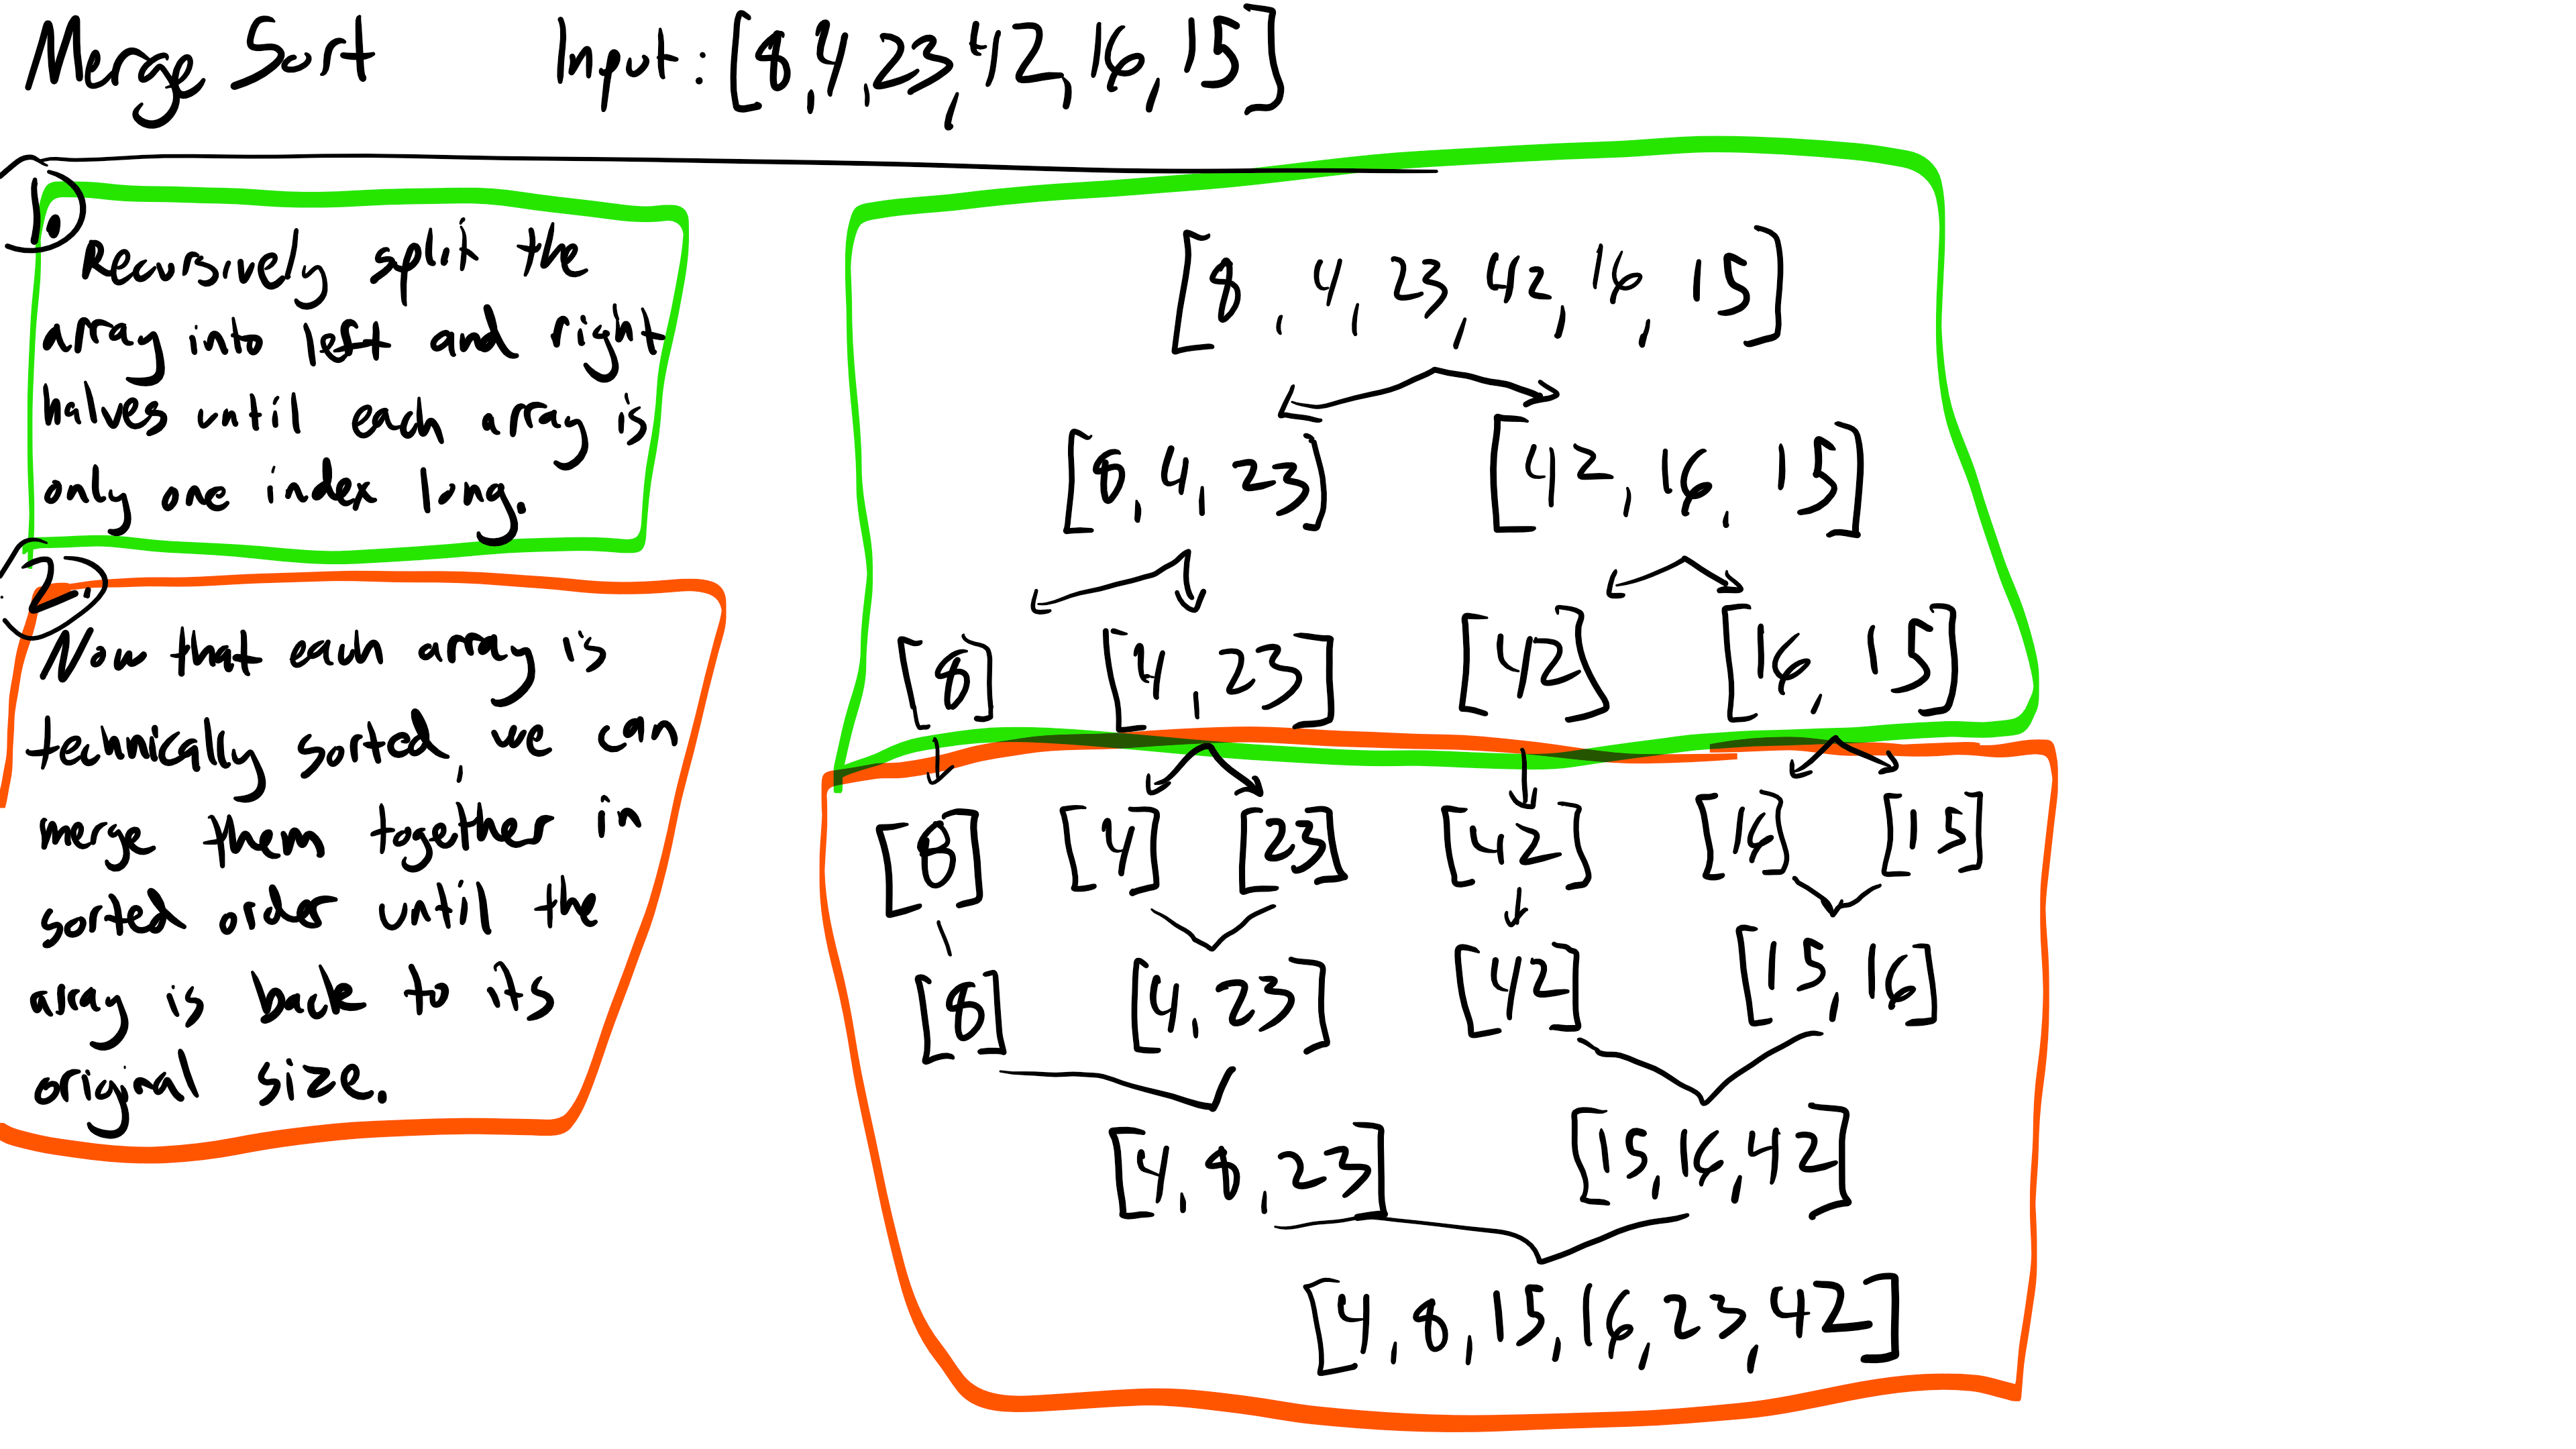 Merge Sort Input: [8,4,23,42,16,15]
1.
Recursively split the
array into left and right
halves until each array is
only one index long.
2.
Now that each array is
technically sorted, we can
merge them together in
sorted order until the
array is back to its
original size.
[8, 4, 23, 42, 16, 15]
[8, 4, 23] [42, 16, 15]
[8] [4, 23] [42] [16, 15]
[8] [4] [23] [42] [16] [15]
[8] [4, 23] [42] [15, 16]
[4, 8, 23] [15, 16, 42]
[4, 8, 15, 16, 23, 42]